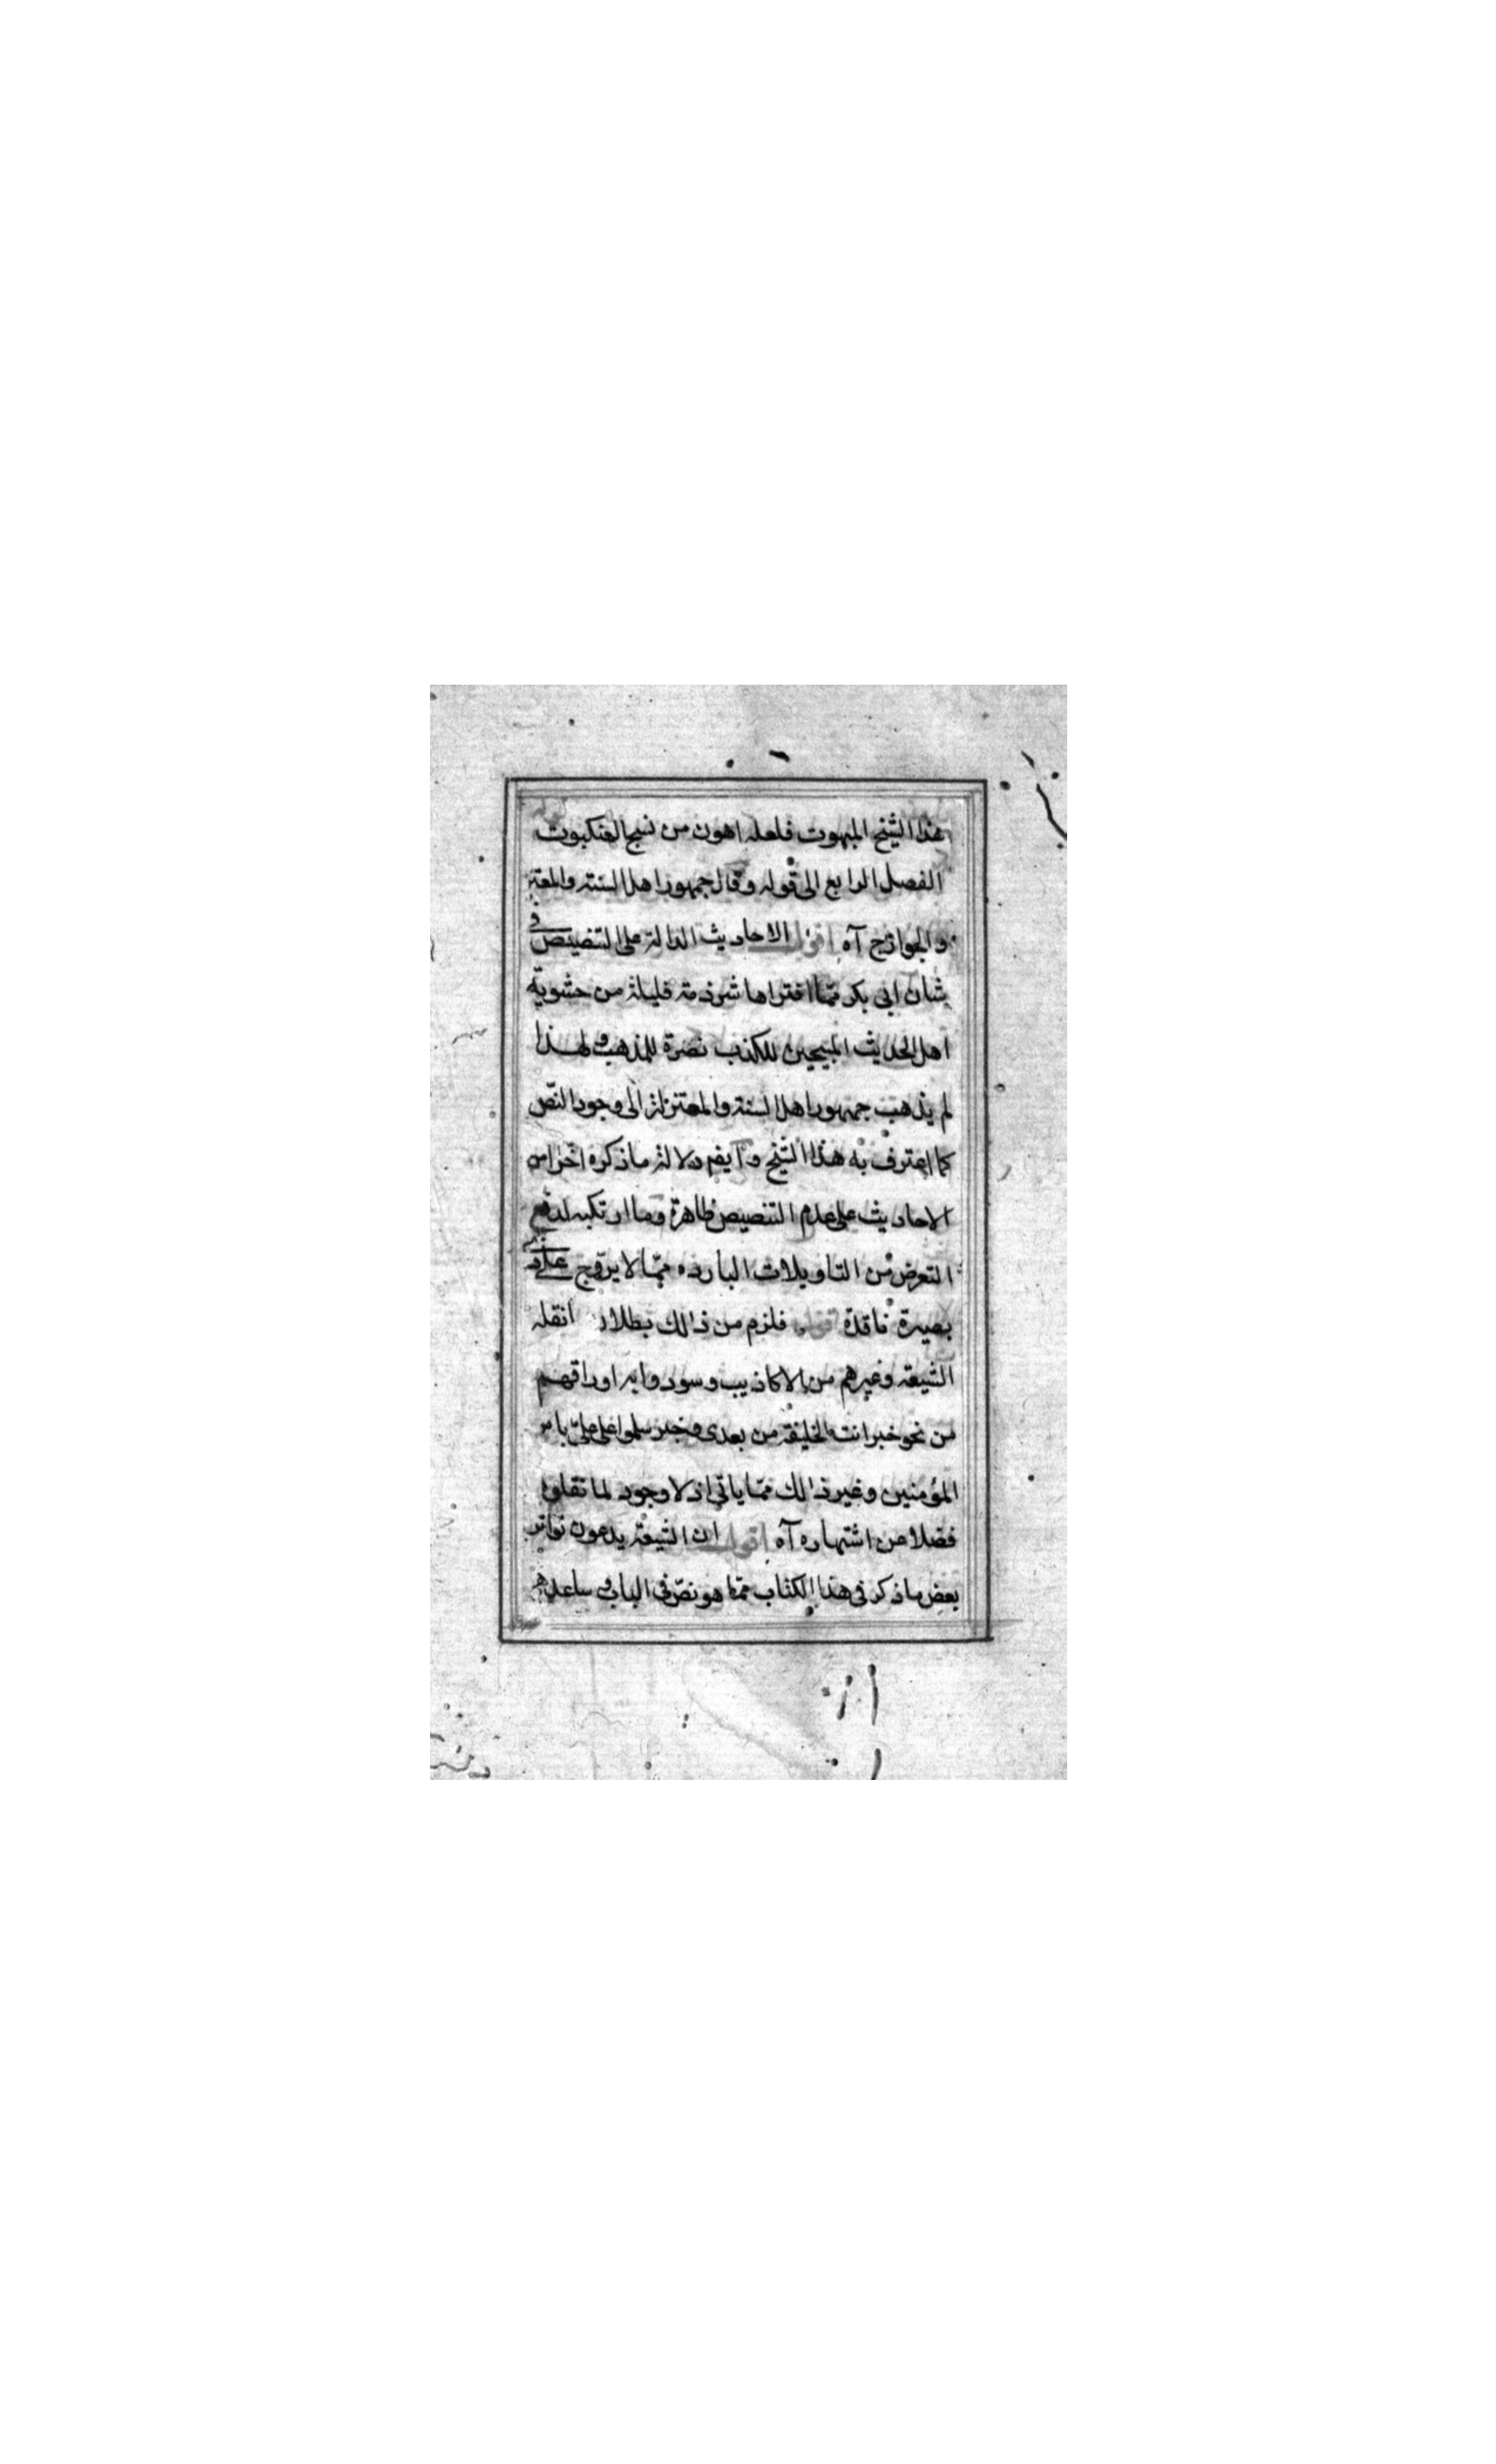 هذا الشيخ المبهوت فلعله اهون من نسج العنكبوت
الفصل الرابع الى قوله وقال جمهور اهل السنة والمعتز
والجوارج آه اقول الاحاديث الدالة على التنصيص في
شان ابى بكر مما افتراها شرذمة قليلة من حشوية
اهل الحديث المبيحين للكذب نصرة للمذهب ولهذا
لم يذهب جمهور اهل السنة والمعتزلة الى وجود النص
كما اعترف به هذا الشيخ وايضا دلالة ما ذكره اخرا من
الاحاديث على عدم التنصيص ظاهرة وما ارتكبه لدفع
التعرض من التاويلات البارده مما لا يروج على ذى
بصيرة ناقدة قوله فلزم من ذلك بطلان ما نقله
الشيعة وغيرهم من الاكاذيب وسودوا به اوراقهم
من نحو خبر انت الخليفة من بعدى وخبر سلموا على على بامر
المؤمنين وغير ذلك مما ياتى اذ لا وجود لما نقلوه
فضلا عن اشتهاره آه اقول ان الشيعة يدعون تواتر
بعض ما ذكر فى هذا الكتاب مما هو نص فى الباب و ساعدهم